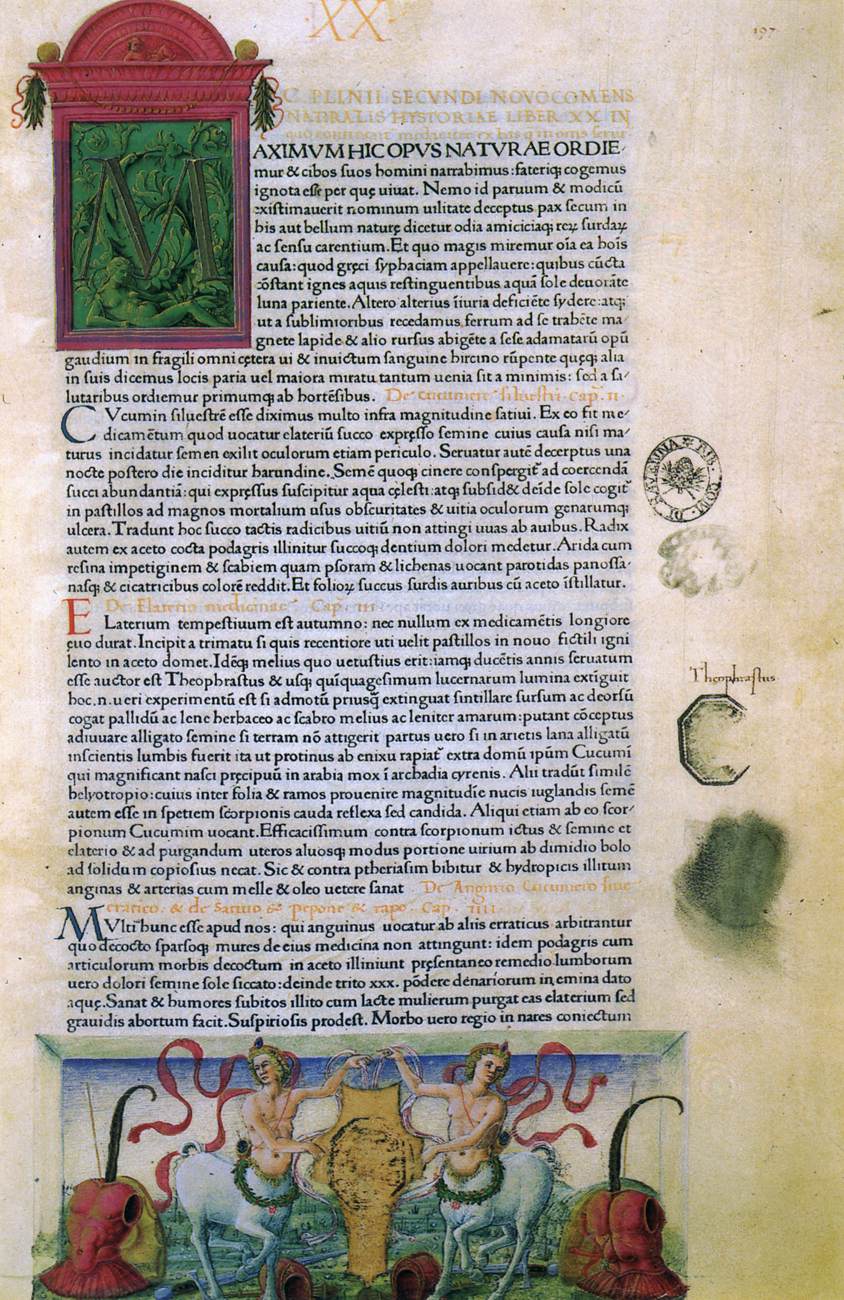 XX
197
C PLINII SECVNDI NOVOCOMENS
NATVRALIS HYSTORIAE LIBER XX IN
MAXIMVM HIC OPVS NATVRAE ORDIE
mur & cibos suos homini narrabimus: fateriq; cogemus
ignota esse per quę uiuat. Nemo id paruum & modicū
existimauerit nominum uilitate deceptus pax secum in
bis aut bellum naturę dicetur odia amiciciaq; reꝝ surdaꝝ
ac sensu carentium. Et quo magis miremur oīa ea hoīs
causa: quod gręci sypbaciam appellauere: quibus cūcta
cōstant ignes aquis restinguentibus aquā sole deuorāte
luna pariente. Altero alterius īiuria deficiēte sydere: atq;
ut a sublimioribus recedamus ferrum ad se trahēte ma
gnete lapide & alio rursus abigēte a sese adamatarū opū
gaudium in fragili omni cętera ui & inuictum sanguine hircino rūpente quęq; alia
in suis dicemus locis paria uel maiora miratu tantum uenia sit a minimis: sed a sa
lutaribus ordiemur primumq; ab hortēsibus. De cucumere siluestri. Cap. II.
CVcumin siluestrē esse diximus multo infra magnitudinē satiui. Ex eo fit me
dicamētum quod uocatur elateriū succo expręsso semine cuius causa nisi ma
turus incidatur semen exilit oculorum etiam periculo. Seruatur autē decerptus una
nocte postero die inciditur harundine. Semē quoq; cinere conspergit ad coercendā
succi abundantiā: qui expręssus suscipitur aqua cęlesti: atq; subsid& deīde sole cogit
in pastillos ad magnos mortalium usus obscuritates & uitia oculorum genarumq;
ulcera. Tradunt hoc succo tactis radicibus uitiū non attingi uuas ab auibus. Radix
autem ex aceto cocta podagris illinitur succoq; dentium dolori medetur. Arida cum
resina impetiginem & scabiem quam psoram & lichenas uocant parotidas panossa
nasq; & cicatricibus colorē reddit. Et folioꝝ succus surdis auribus cū aceto īstillatur.
De Elaterio medicinae Cap. III
ELaterium tempestiuum est autumno: nec nullum ex medicamētis longiore
ęuo durat. Incipit a trimatu si quis recentiore uti uelit pastillos in nouo fictili igni
lento in aceto domet. Idēq; melius quo uetustius erit: iamq; ducētis annis seruatum
esse auctor est Theophrastus & usq; quīquagesimum lucernarum lumina extīguit
hoc. n. ueri experimentū est si admotū priusq̄ extinguat sintillare sursum ac deorsū
cogat pallidū ac lene herbaceo ac scabro melius ac leniter amarum: putant cōceptus
adiuuare alligato semine si terram nō attigerit partus uero si in arietis lana alligatū
inscientis lumbis fuerit ita ut protinus ab enixu rapiat extra domū ipūm Cucumī
qui magnificant nasci pręcipuū in arabia mox ī archadia cyrenis. Alii tradūt similē
helyotropio: cuius inter folia & ramos prouenire magnitudīe nucis iuglandis semē
autem esse in spetiem scorpionis cauda reflexa sed candida. Aliqui etiam ab eo scor
pionum Cucumim uocant. Efficacissimum contra scorpionum ictus & semine et
elaterio & ad purgandum uteros aluosq; modus portione uirium ab dimidio bolo
ad solidum copiosius necat. Sic & contra ptheriasim bibitur & hydropicis illitum
anginas & arterias cum melle & oleo uetere sanat De Anguino Cucumero siue
erratico. & de Satiuo & pepone & rapo. Cap. IIII.
MVlti hunc esse apud nos: qui anguinus uocatur ab aliis erraticus arbitrantur
quo decocto sparsoq; mures de eius medicina non attingunt: idem podagris cum
articulorum morbis decoctum in aceto illiniunt pręsentaneo remedio lumborum
uero dolori semine sole siccato: deinde trito xxx. pōdere denariorum in emina dato
aquę. Sanat & humores subitos illito cum lacte mulierum purgat eas elaterium sed
grauidis abortum facit. Suspiriosis prodest. Morbo uero regio in nares coniectum
Theophrastus